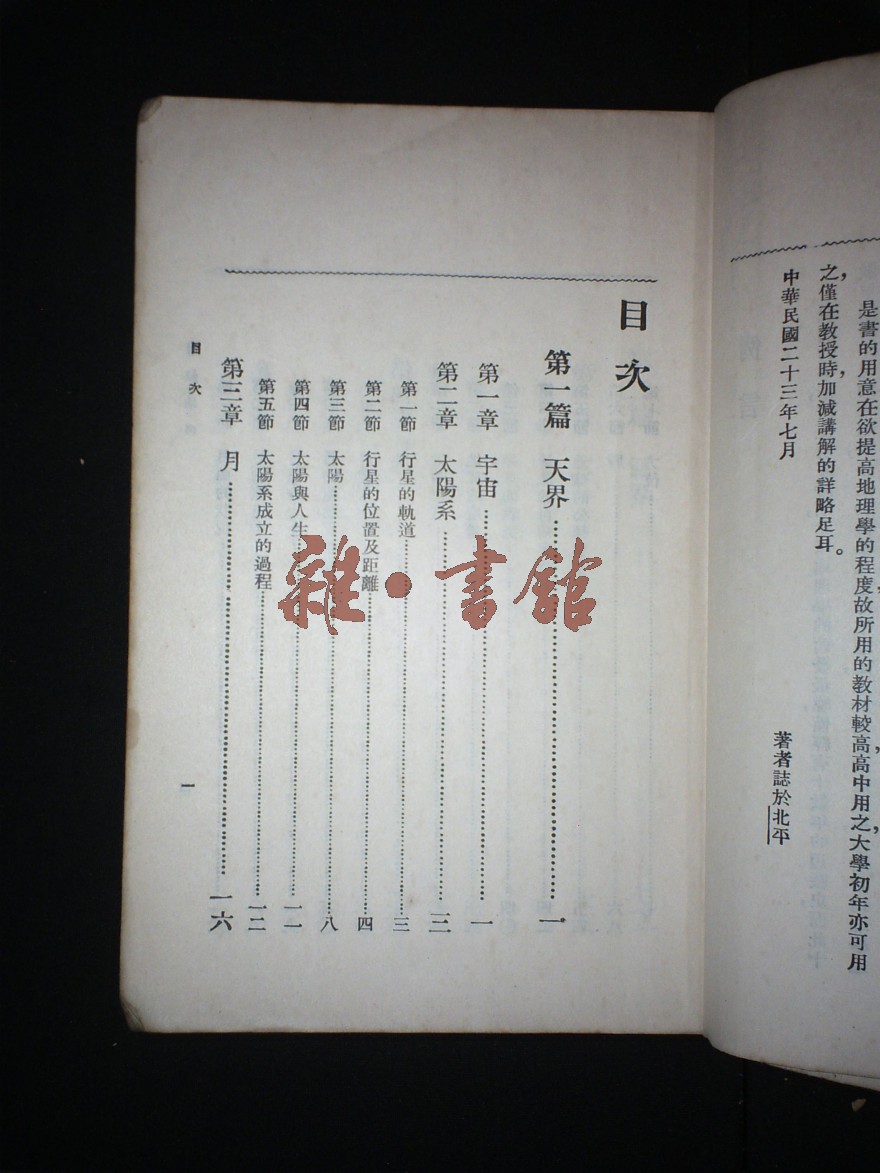 是書的用意在欲提高地理學的程度故所用的教材較高,高中用之,大學初年亦可用
之,僅在教授時,加減講解的詳略足耳。
中華民國二十三年七月
著者誌於北平
目次
第一篇 天界……一
第一章 宇宙……一
第二章 太陽系……三
第一節 行星的軌道……三
第二節 行星的位置及距離……四
第三節 太陽……八
第四節 太陽與人生……一一
第五節 太陽系成立的過程……一二
第三章 月……一六
目次
一
雜·書館